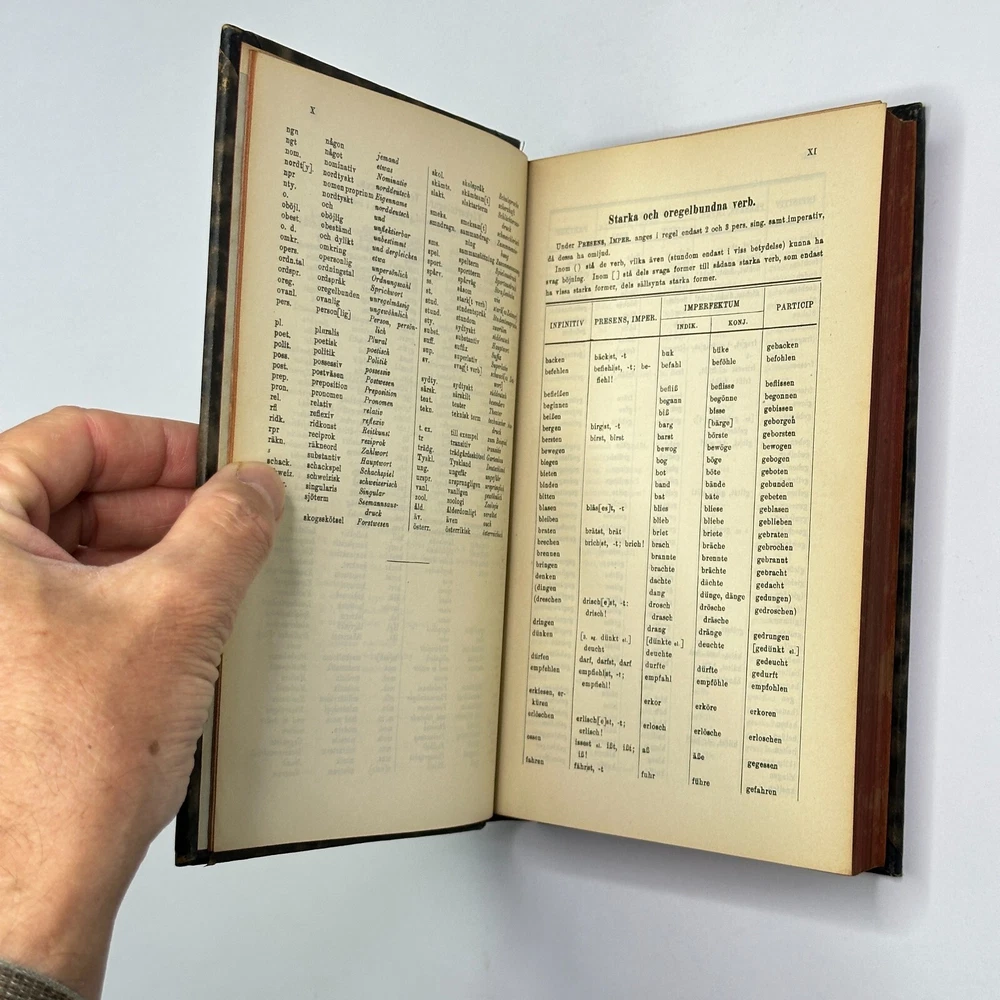 X
ngn någon jemand
ngt något etwas
nom. nominativ Nominativ
nordt[y]. nordtyskt norddeutsch
npr nomen proprium Eigenname
nty. nordtyskt norddeutsch
o. och und
oböjl. oböjlig unflektierbar
obest. obestämd unbestimmt
o. d. och dylikt und dergleichen
omkr. omkring etwa
opers. opersonlig unpersönlich
ordn.tal ordningstal Ordnungszahl
ordspr. ordspråk Sprichwort
oreg. oregelbunden unregelmässig
ovanl. ovanlig ungewöhnlich
pers. person[lig] Person, persön-
lich
pl. pluralis Plural
poet. poetisk poetisch
polit. politik Politik
poss. possessiv possessiv
post. postväsen Postwesen
prep. preposition Preposition
pron. pronomen Pronomen
rel. relativ relativ
rfl reflexiv reflexiv
ridk. ridkonst Reitkunst
rpr reciprok reziprok
räkn. räkneord Zahlwort
s substantiv Hauptwort
schack. schackspel Schachspiel
schweizisk schweizerisch
singularis Singular
sjöterm Seemannsaus-
druck
skogsskötsel Forstwesen
skol. skolspråk
skämts. skämtsam[t]
slakt. slaktarterm
smeks. smeksam[t]
smndragn. sammandrag-
ning
sms. sammansättning
spel. spelterm
sport. sportterm
spårv. spårväg
ss. såsom
st. stark[t verb]
stud. studentspråk
sty. sydtyskt
subst. substantiv
suff. suffix
sup. superlativ
sv. svag[t verb]
sydty. sydtyskt
särsk. särskilt
teat. teater
tekn. teknisk term
t. ex. till exempel
tr transitiv
trädg. trädgårdsskötsel
Tyskl. Tyskland
ung. ungefär
urspr. ursprungligen
vanl. vanligen
zool. zoologi
åld. ålderdomligt
äv. även
österr. österrikisk
XI
Starka och oregelbundna verb.
Under PRESENS, IMPER. anges i regel endast 2 och 3 pers. sing. samt imperativ,
då dessa ha omljud.
Inom ( ) stå de verb, vilka även (stundom endast i viss betydelse) kunna ha
svag böjning. Inom [ ] stå dels svaga former till sådana starka verb, som endast
ha vissa starka former, dels sällsynta starka former.
INFINITIV PRESENS, IMPER. IMPERFEKTUM PARTICIP
INDIK. KONJ.
backen bäck|st, -t buk büke gebacken
befehlen befiehl|st, -t; be- befahl beföhle befohlen
fiehl!
befleißen befliß beflisse beflissen
beginnen begann begönne begonnen
beißen biß bisse gebissen
bergen birg|st, -t barg [bärge] geborgen
bersten birst, birst barst börste geborsten
bewegen bewog bewöge bewogen
biegen bog böge gebogen
bieten bot böte geboten
binden band bände gebunden
bitten bat bäte gebeten
blasen bläs[es]t, -t blies bliese geblasen
bleiben blieb bliebe geblieben
braten brätst, brät briet briete gebraten
brechen brich|st, -t; brich! brach bräche gebrochen
brennen brannte brennte gebrannt
bringen brachte brächte gebracht
denken dachte dächte gedacht
(dingen dang dünge, dänge gedungen)
(dreschen drisch[e]st, -t; drosch drösche gedroschen)
drisch! drasch dräsche
dringen drang dränge gedrungen
dünken [h. og. dünkt el.] [dünkte el.] deuchte [gedünkt el.]
deucht deuchte gedeucht
dürfen darf, darfst, darf durfte dürfte gedurft
empfehlen empfiehl|st, -t; empfahl empföhle empfohlen
empfiehl!
erkiesen, er-
küren erkor erköre erkoren
erlöschen erlisch[e]st, -t; erlosch erlösche erloschen
erlisch!
essen issest el. ißt, ißt; aß äße gegessen
iß!
fahren fähr|st, -t fuhr führe gefahren